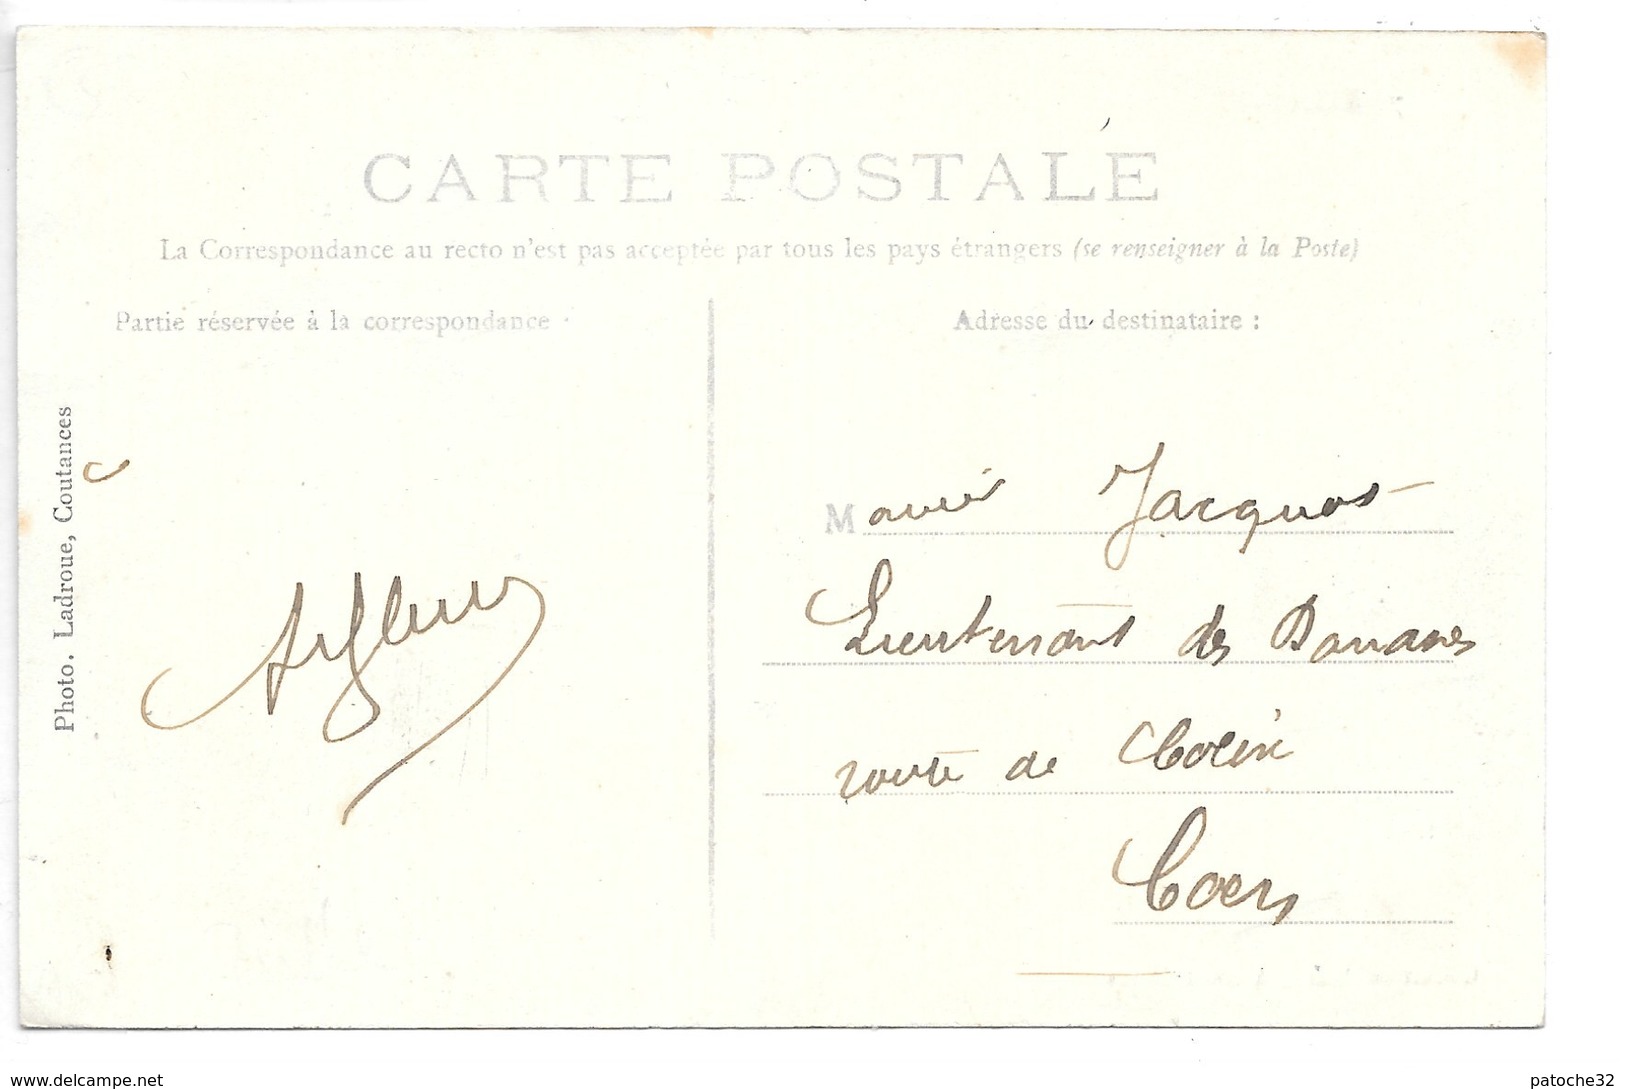 CARTE POSTALE
La Correspondance au recto n'est pas acceptée par tous les pays étrangers (se renseigner à la Poste)
Partie réservée à la correspondance
Adresse du destinataire :
Photo. Ladroue, Coutances
M Jacquot
Lieutenant des Douanes
route de
www.delcampe.net
patoche32